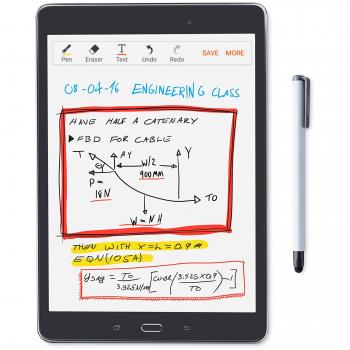 Pen Eraser Text Undo Redo SAVE MORE
08-04-16 ENGINEERING CLASS
HAVE HALF A CATENARY
▶ FBD FOR CABLE
T AY W/2 Y
θ 900MM
P=
18N
TO
W = NH
THEN WITH X=L=0.9m
EQN(105A)
ySAg = TO / 3.925N/m [COSh (3.925×0.9 / TO) -1]